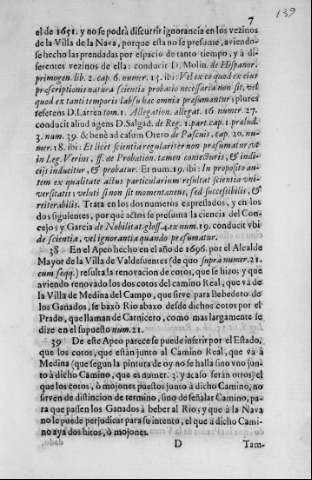 7
139
el de 1651. y no se podrá discurrir ignorancia en los vezinos
de la Villa de la Nava, porque esta no se presume, aviendo-
se hecho las prendadas por espacio de tanto tiempo, y à di-
ferentes vezinos de ella: conducir D. Molin. de Hispanor.
primogen. lib. 2. cap. 6. numer. 15. ibi: Vel ex eo quod ex eius
præscriptionis natura scientia probatio necessaria non sit, vel
quod ex tanti temporis lapsu hæc omnia præsumantur; plures
referens D. Larrea tom. 1. Allegation. allegat. 16. numer. 27.
conducit aliud agens D. Salgad. de Reg. 1. part. cap. 1. prælud.
3. num. 39. & benè ad casum Otero de Pascuis, cap. 20. nu-
mer. 18. ibi: Et licet scientia regulariter non præsumatur, vt
in Leg. Verius, ff. de Probation. tamen coniecturis, & indi-
cijs inducitur, & probatur. Et num. 19. ibi: In proposito au-
tem ex qualitate actus particularium resultat scientia vni-
versitatis; veluti sinon sit momentaneus, sed succesibilis, &
reiterabilis. Trata en los dos numeros expressados, y en los
dos siguientes, porque actos se presuma la ciencia del Con-
cejo; y Garcia de Nobilitat gloss. 4. ex num. 19. conducit vbi
de scientia, vel ignorantia quando præsumatur.
38 En el Apeo hecho en el año de 1696. por el Alcalde
Mayor de la Villa de Valdefuentes (de quo suprà numer. 21.
cum seqq.) resulta la renovacion de cotos, que se hizo; y que
aviendo renovado los dos cotos del camino Real, que và de
la Villa de Medina del Campo, que sirve para llebedero de
los Ganados, se baxò Rio abaxo desde dichos cotos por el
Prado, que llaman de Carnicero, como mas largamente se
dize en el supuesto num. 21.
39 De este Apeo parece se puede inferir por el Estado,
que los cotos, que estàn junto al Camino Real, que và à
Medina (que segun la pintura de oy no se halla sino vno jun-
to à dicho Camino, que es numer. 3. y acaso seràn otros) el
que los cotos, ò mojones puestos junto à dicho Camino, no
sirven de distincion de termino, sino de señalar Camino, pa-
ra que passen los Ganados à beber al Rio; y que à la Nava
no le puede perjudicar para su intento, el que à dicho Cami-
no aya dos hitos, ò mojones.
D
Tam-